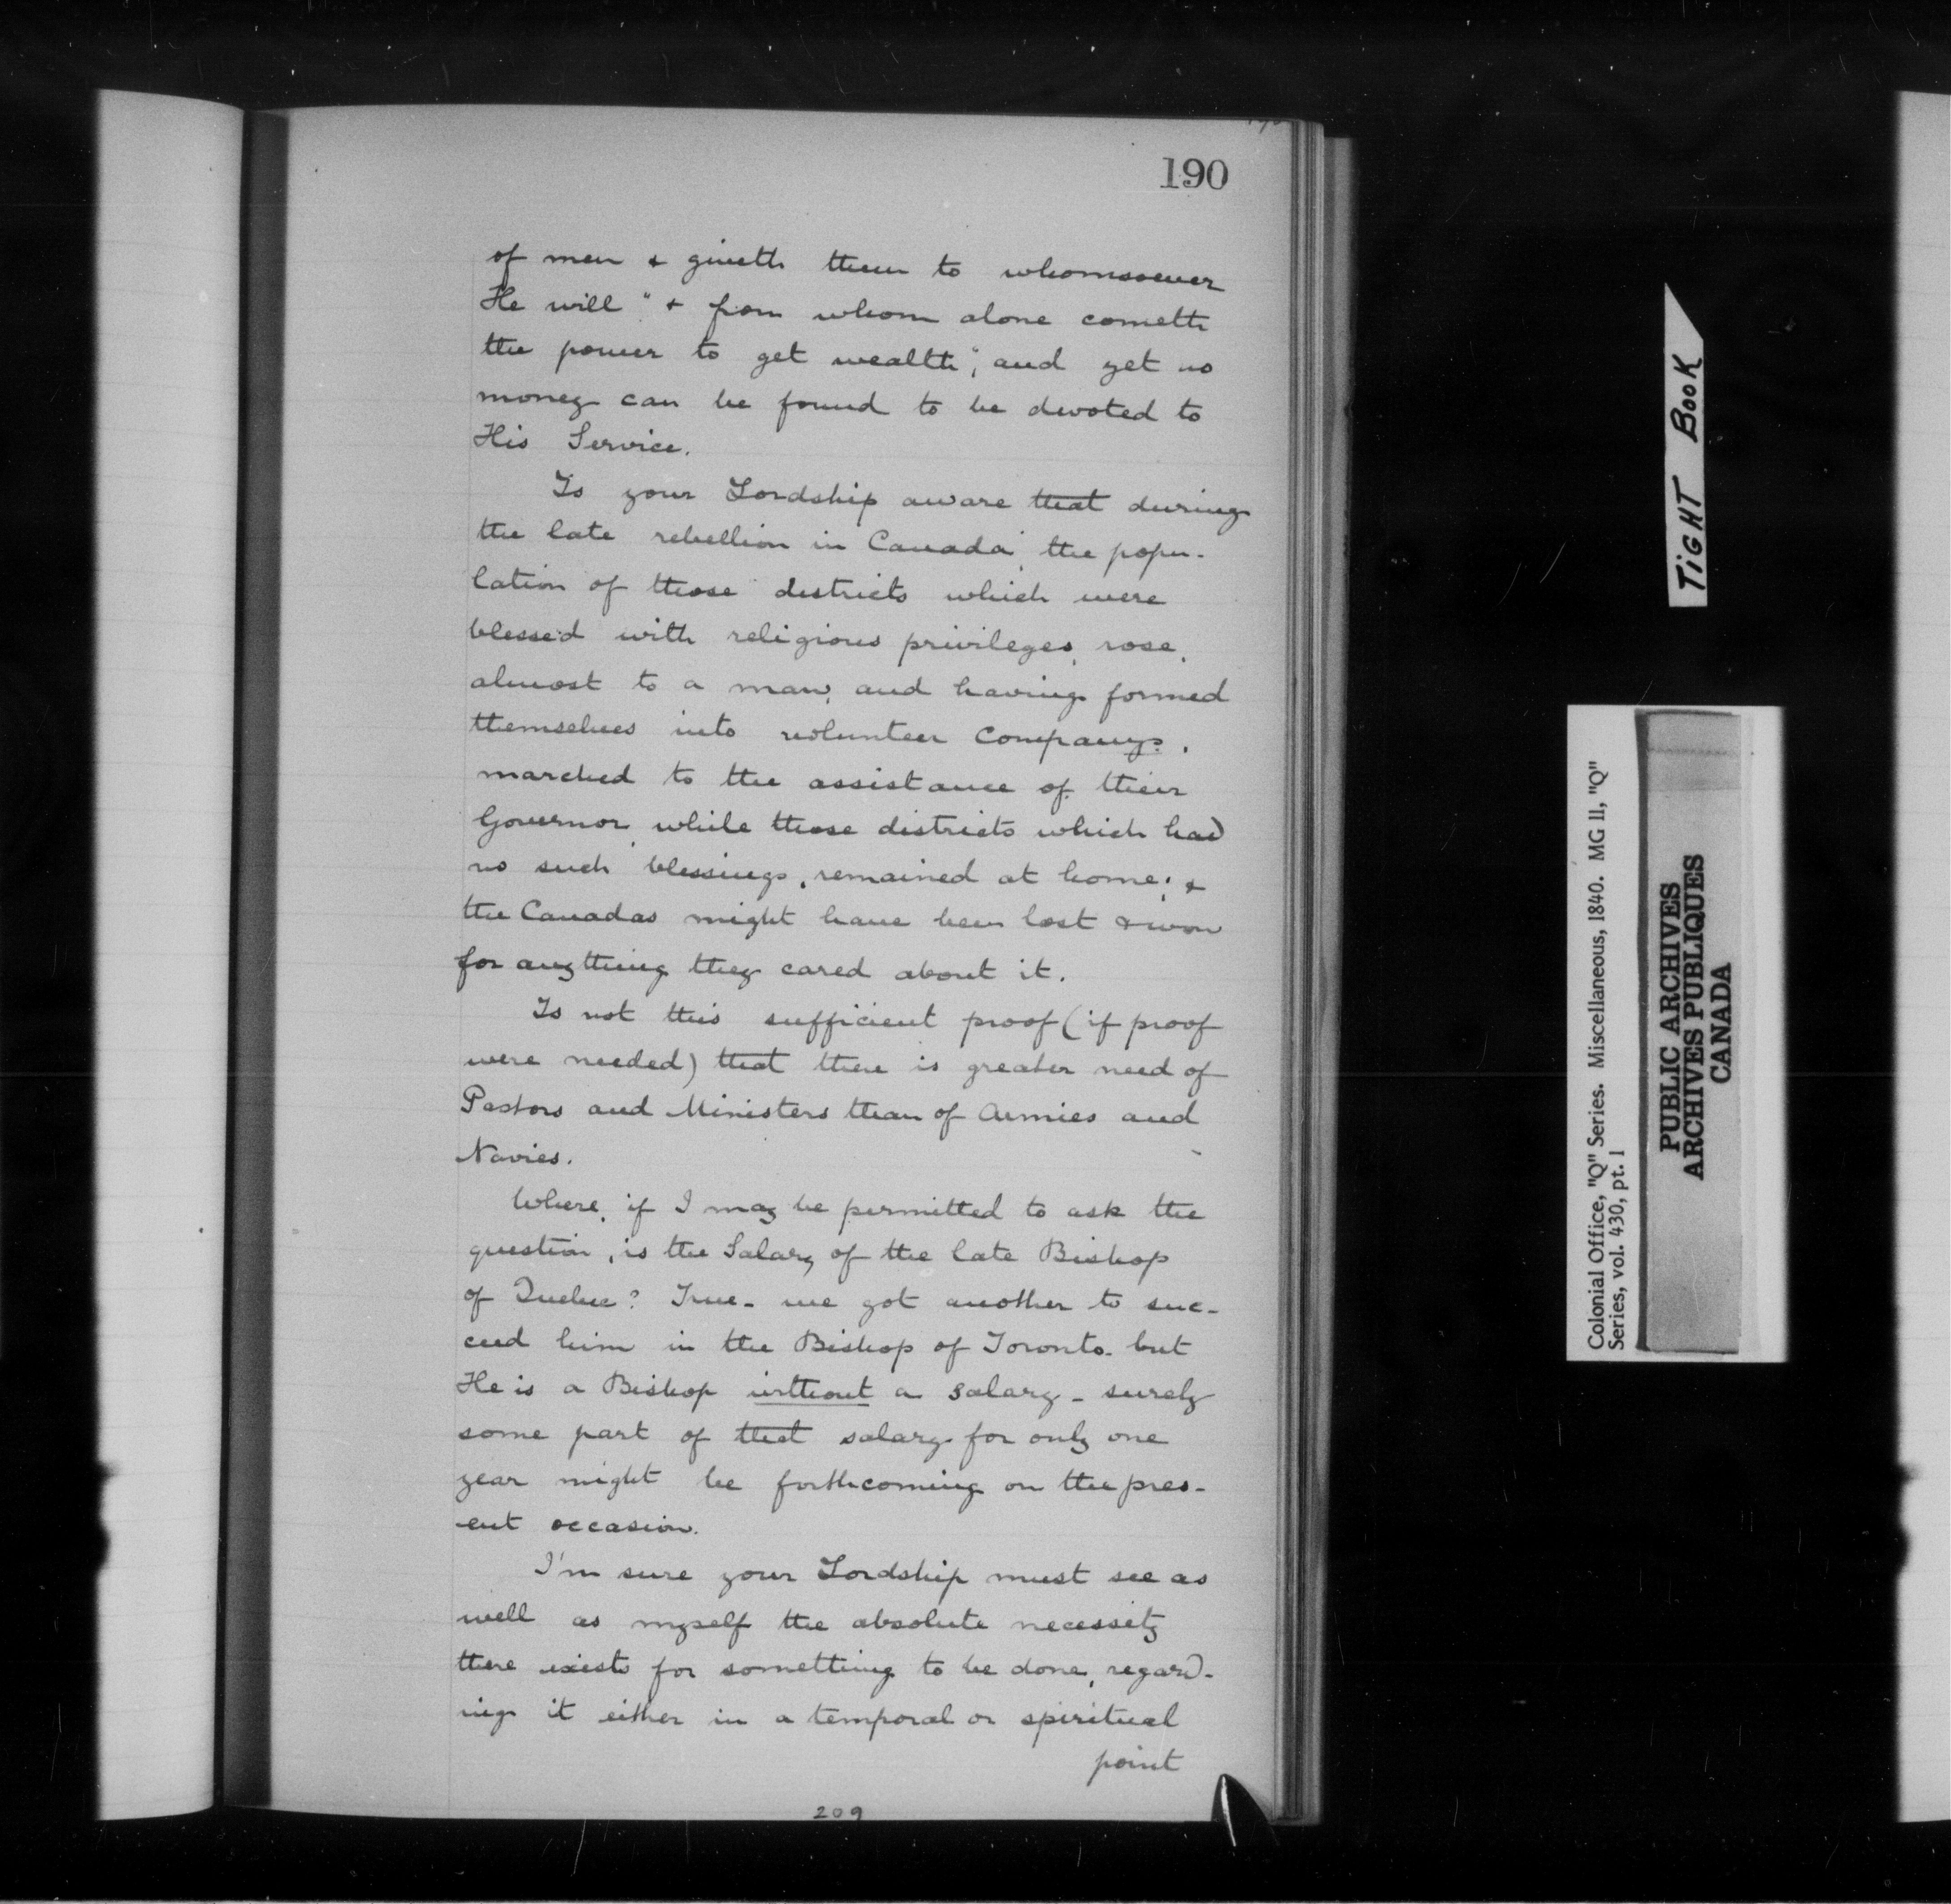 190
of men & giveth them to whomsoever
He will" & from whom alone cometh
the power to get wealth", and yet no
money can be found to be devoted to
His Service.
Is your Lordship aware that during
the late rebellion in Canada, the popu-
lation of those districts which were
blessed with religious privileges, rose,
almost to a man, and having formed
themselves into volunteer Companys,
marched to the assistance of their
Governor, while those districts which had
no such blessings, remained at home; &
the Canadas might have been lost & won
for anything they cared about it.
Is not this sufficient proof (if proof
were needed) that there is greater need of
Pastors and Ministers than of Armies and
Navies.
Where, if I may be permitted to ask the
question, is the Salary of the late Bishop
of Quebec? True - we got another to suc-
ceed him in the Bishop of Toronto - but
He is a Bishop without a salary - surely
some part of that salary for only one
year might be forthcoming on the pres-
ent occasion.
I'm sure your Lordship must see as
well as myself the absolute necessity
there exists for something to be done, regard-
ing it either in a temporal or spiritual
point
209
TiGHT BooK
Colonial Office, "Q" Series. Miscellaneous, 1840. MG 11, "Q"
Series, vol. 430, pt. 1
PUBLIC ARCHIVES
ARCHIVES PUBLIQUES
CANADA